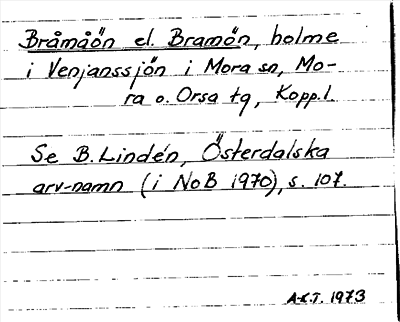 Bråmåön el. Bramön, holme
i Venjanssjön i Mora sn, Mo-
ra o. Orsa tg, Kopp.l.
Se B. Lindén, Österdalska
arv-namn (i NoB 1970), s. 107.
A-C.T. 1973